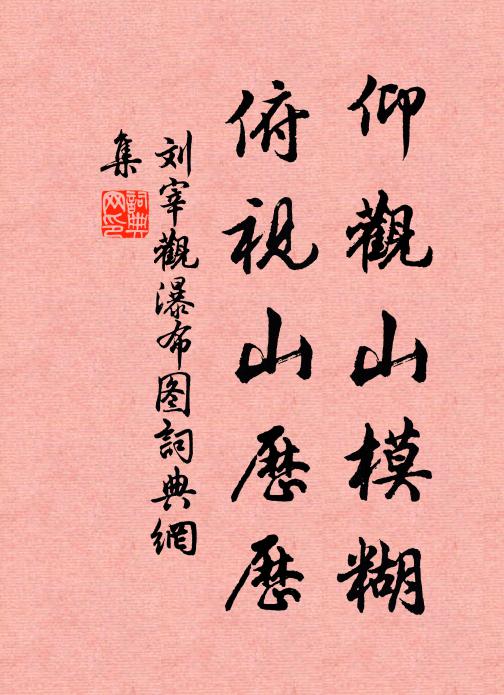 仰觀山模糊
俯視山歷歷
刘宰觀瀑布图詞典網
集
詞典
网印